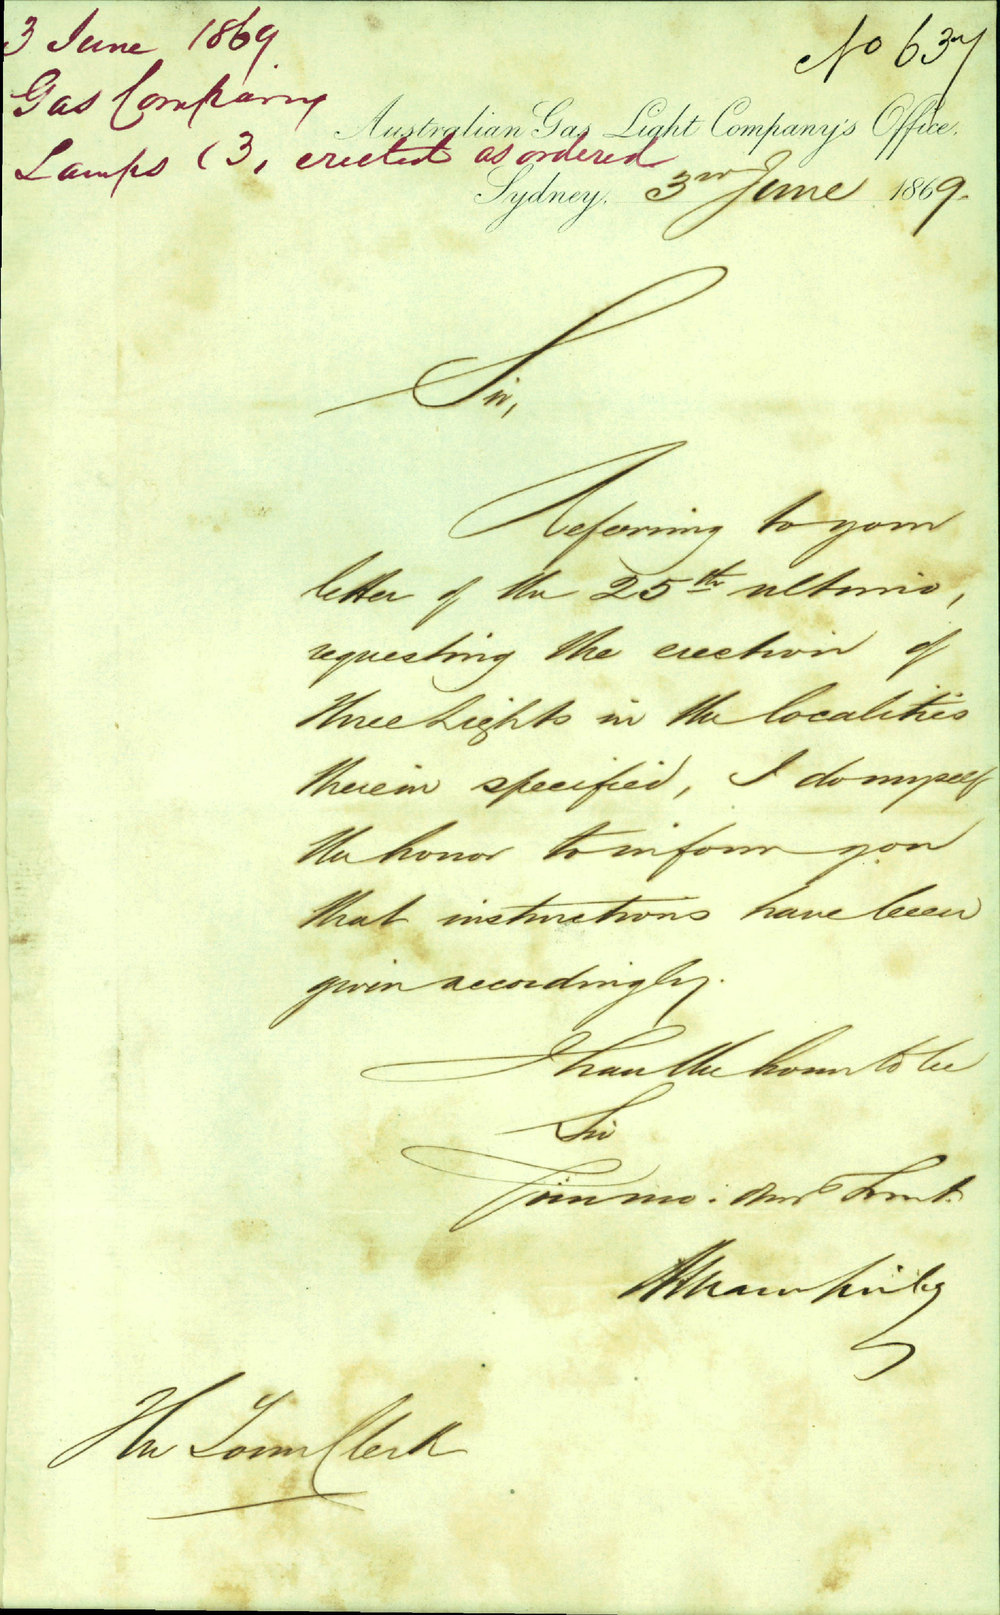 3 June 1869
No 637
Gas Company
Australian Gas Light Company's Office.
Lamps (3, erected as ordered
Sydney, 3rd June 1869.
Sir,
Referring to your
letter of the 25th ultimo,
requesting the erection of
three Lights in the localities
therein specified, I do myself
the honor to inform you
that instructions have been
given accordingly.
I have the honor to be
Sir
Your mo: Obt Servt.
The Town Clerk